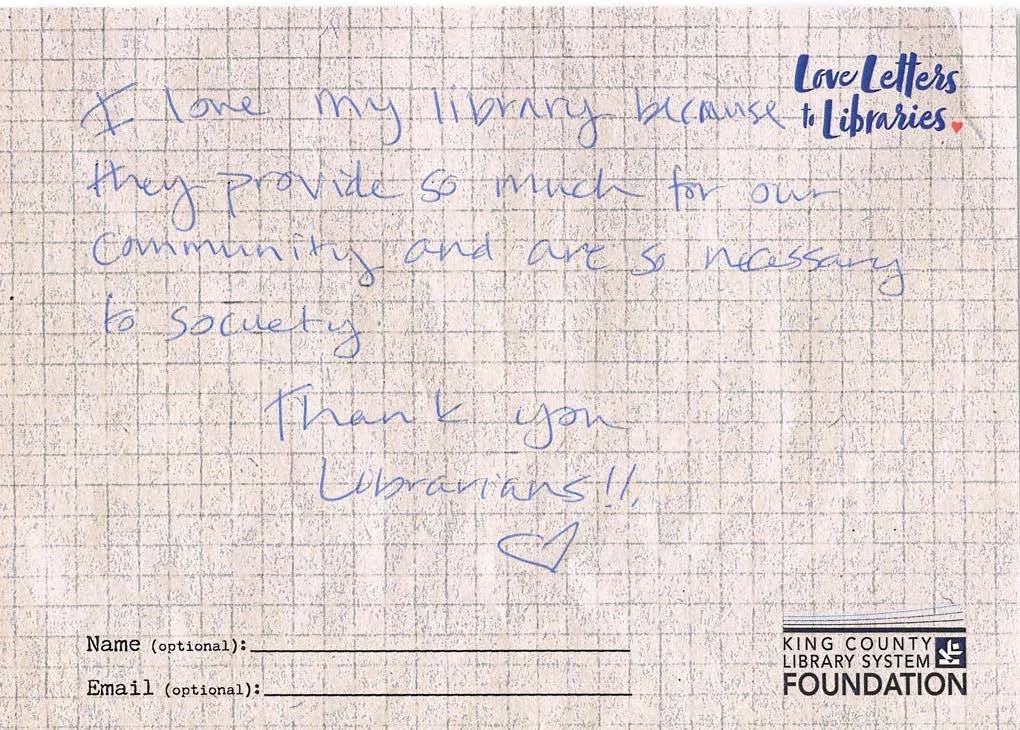 Love Letters
to Libraries
I love my library because
they provide so much for our
community and are so necessary
to society.
Thank you
Librarians!!
Name (optional):
Email (optional):
KING COUNTY
LIBRARY SYSTEM
FOUNDATION